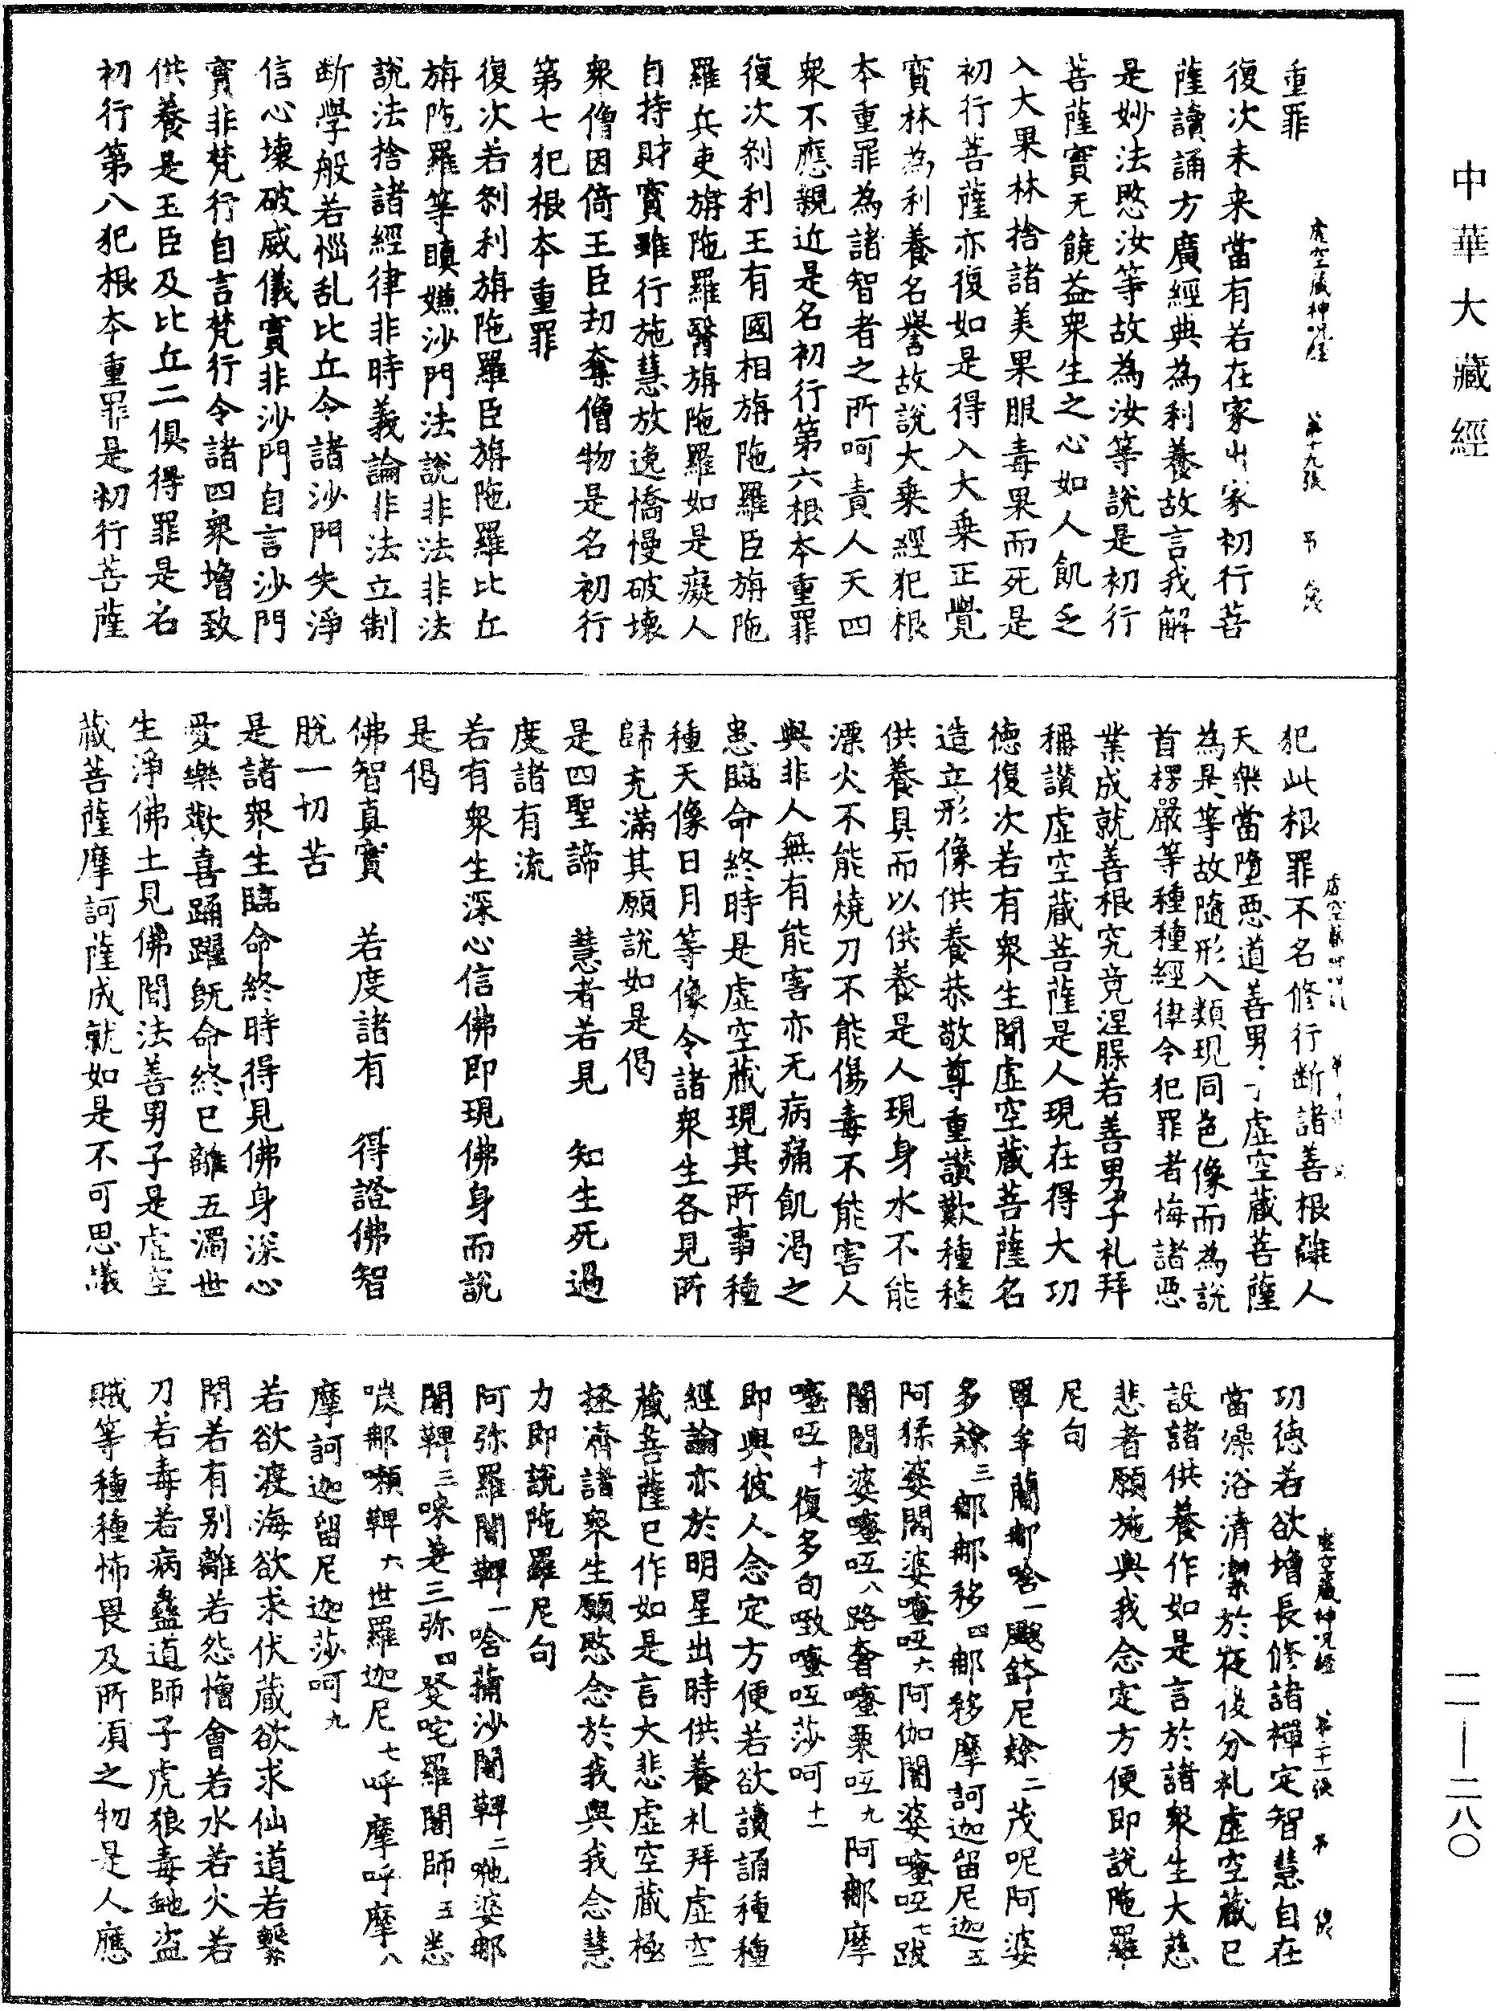 中華大藏經
一一—二八〇
重罪
虛空藏神呪經 第十九張
復次未来當有若在家出家初行菩
薩讀誦方廣經典為利養故言我解
是妙法愍汝等故為汝等說是初行
菩薩實无饒益衆生之心如人飢乏
入大果林捨諸美果服毒果而死是
初行菩薩亦復如是得入大乘正覺
寶林為利養名譽故說大乘經犯根
本重罪為諸智者之所呵責人天四
衆不應親近是名初行第六根本重罪
復次刹利王有國相旃陁羅臣旃陁
羅兵吏旃陁羅醫旃陁羅如是癡人
自持財寶雖行施慧放逸憍慢破壞
衆僧因倚王臣劫奪僧物是名初行
第七犯根本重罪
復次若刹利旃陁羅臣旃陁羅比丘
旃陁羅等瞋嫌沙門法說非法非法
說法捨諸經律非時義論非法立制
断學般若惱乱比丘令諸沙門失淨
信心壞破威儀實非沙門自言沙門
實非梵行自言梵行令諸四衆增致
供養是王臣及比丘二俱得罪是名
初行第八犯根本重罪是初行菩薩
犯此根罪不名修行断諸善根離人
天樂當墮惡道善男子虛空藏菩薩
為是等故隨形入類現同色像而為說
首楞嚴等種種經律令犯罪者悔諸惡
業成就善根究竟涅槃若善男子礼拜
稱讚虛空藏菩薩是人現在得大功
德復次若有衆生聞虛空藏菩薩名
造立形像供養恭敬尊重讚歎種種
供養具而以供養是人現身水不能
漂火不能燒刀不能傷毒不能害人
與非人無有能害亦无病痛飢渴之
患臨命終時是虛空藏現其所事種
種天像日月等像令諸衆生各見所
歸充滿其願說如是偈
是四聖諦 慧者若見 知生死過
度諸有流
若有衆生深心信佛即現佛身而說
是偈
佛智真實 若度諸有 得證佛智
脫一切苦
是諸衆生臨命終時得見佛身深心
愛樂歡喜踊躍既命終已離五濁世
生淨佛土見佛聞法善男子是虛空
藏菩薩摩訶薩成就如是不可思議
功徳若欲增長修諸禪定智慧自在
虛空藏神呪經 第二十一張
當澡浴清潔於夜後分礼虛空藏已
設諸供養作如是言於諸衆生大慈
悲者願施與我念定方便即說陁羅
尼句
單牟蘭那唅一颰鉾尼蜍二茂呢阿婆
多蜍三那那移四那移摩訶迦留尼迦五
阿猱婆闍婆嚂㖿六阿伽闍婆嚂㖿七跋
闍闍婆嚂㖿八路奢嚂栗㖿九阿那摩
嚂㖿十復多句㘈嚂㖿莎呵十一
即與彼人念定方便若欲讀誦種種
經論亦於明星出時供養礼拜虛空
藏菩薩已作如是言大悲虛空藏極
拯濟諸衆生願愍念於我與我念慧
力即說陁羅尼句
阿弥羅闍鞞一唅蒱沙闍鞞二虵婆那
闍鞞三㗚㝹三弥四癹咤羅闍師五悉
㗖那嚬鞞六世羅迦尼七呼摩呼摩八
摩訶迦留尼迦莎呵九
若欲渡海欲求伏藏欲求仙道若繫
閇若有别離若怨憎會若水若火若
刀若毒若病蠱道師子虎狼毒虵盜
賊等種種怖畏及所湏之物是人應